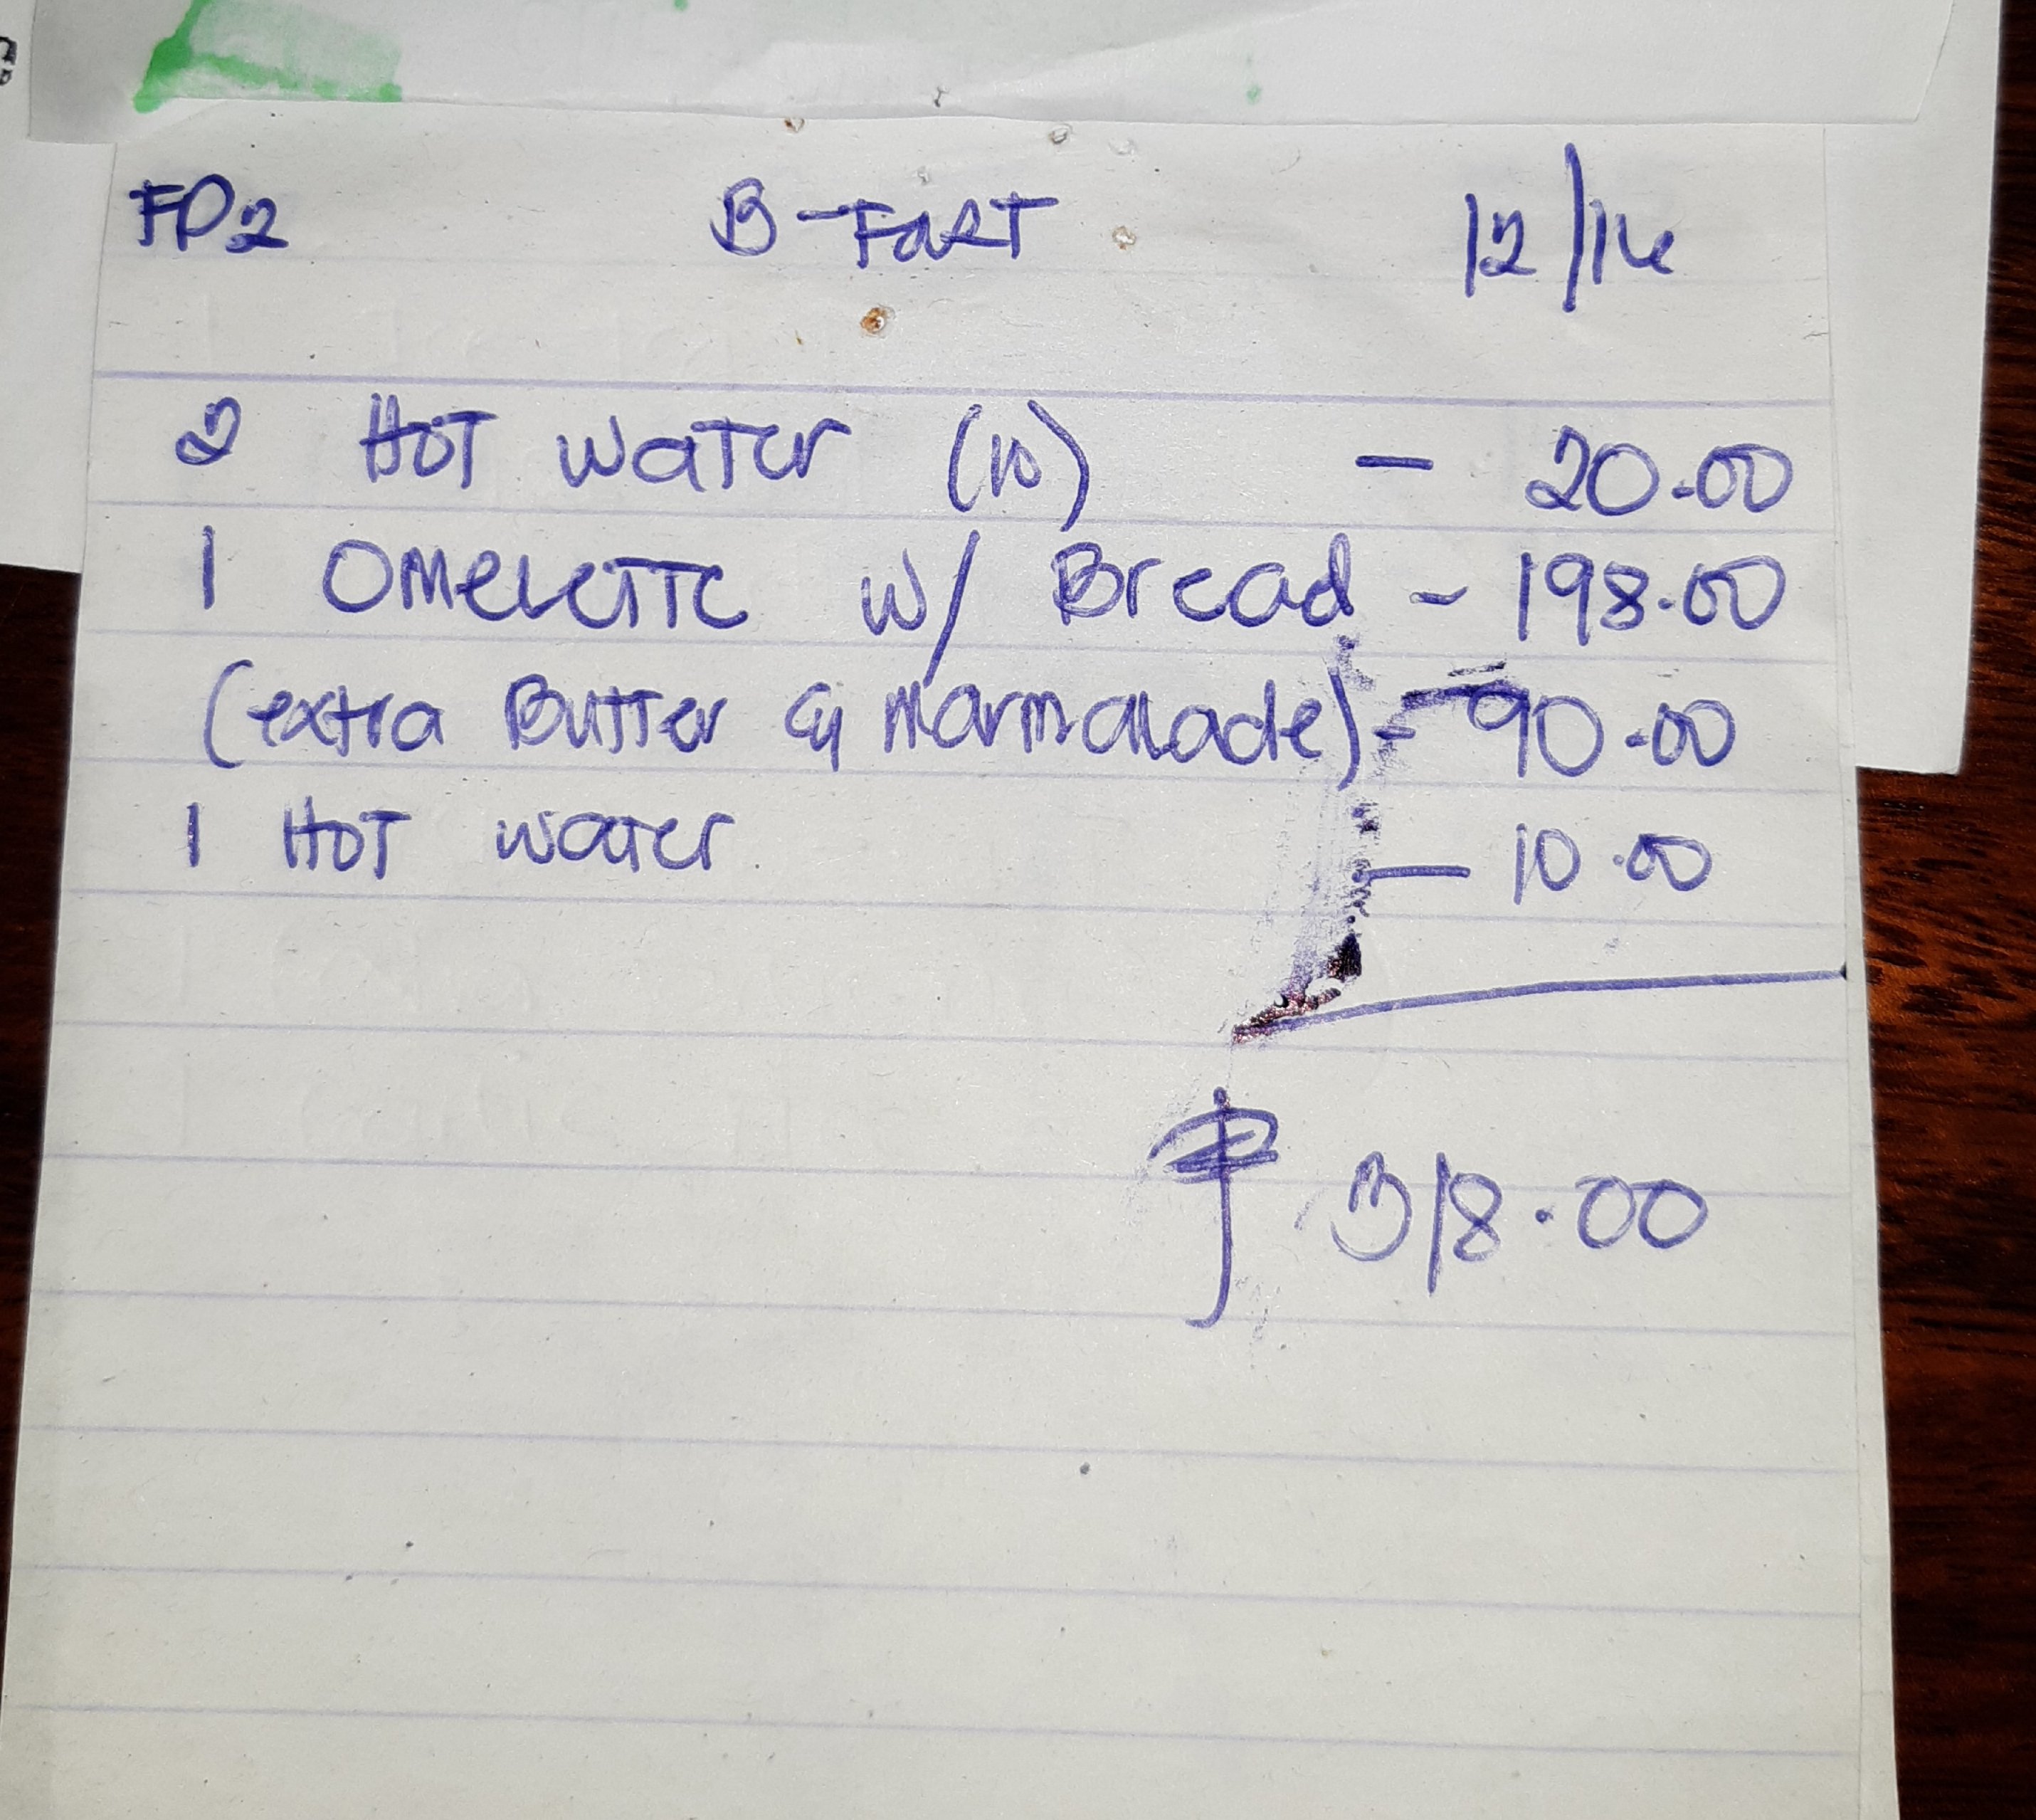 FD2 B-FAST 12/16
2 HOT WATER (10) - 20.00
1 OMELETTE W/ Bread - 198.00
(extra Butter & Marmalade) - 90.00
1 HOT WATER - 10.00
₱ 318.00